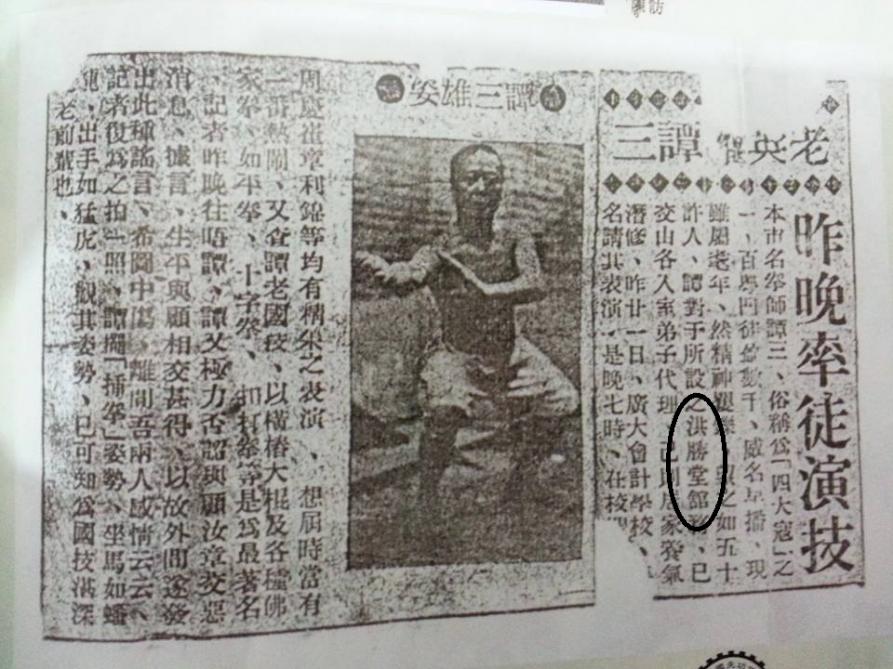 訪
老英 譚三
昨晚率徒演技
本市名拳師譚三、俗稱為「四大寇」之
一、百粵門徒 數千、威名早播、現
雖屬老年、然精神 、望之如五十
許人、譚對于所設之洪勝堂館 、已
交山各入室弟子代理、己則居家養氣
潛修、昨廿一日、廣大會計學校、
名請其表演、是晚七時、在校
譚三雄姿
周慶崔章利錦等均有精采之表演、想屆時當有
一番熱鬧、又查譚老國技、以橫樁大棍及各種佛
家拳、如平拳、十字拳、扣打拳等是為最著名
、記者昨晚往晤譚、譚又極力否認與顧汝章交惡
消息、據言、生平與顧相交甚得、以故外間遂發
出此種謠言、希圖中傷、離間吾兩人感情云云、
記者復為之拍一照、譚 「插拳」姿勢、坐馬如蟠
龍、出手如猛虎、觀其姿勢、已可知為國技湛深
老前輩也、